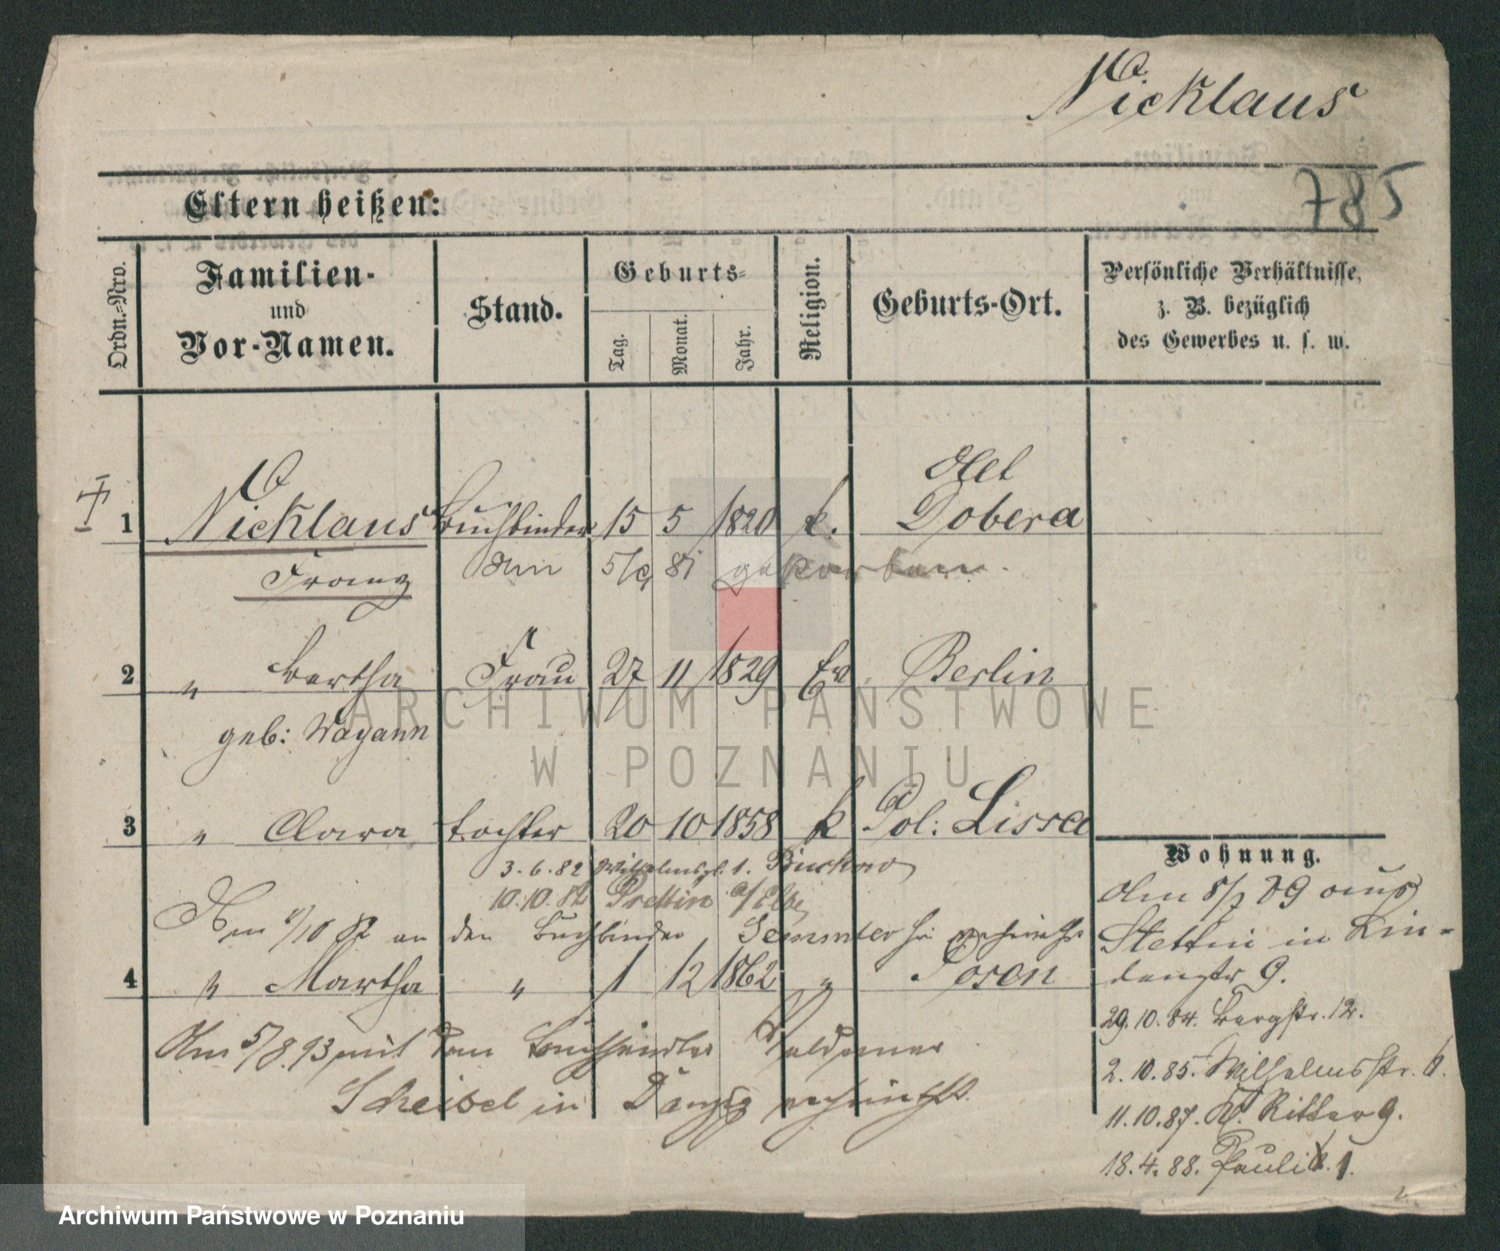 Nicklaus
785
Eltern heißen:
Ordn.-Nro.
Familien-
und
Vor-Namen.
Stand.
Geburts-
Tag.
Monat.
Jahr.
Religion.
Geburts-Ort.
Persönliche Verhältnisse,
z. B. bezüglich
des Gewerbes u. s. w.
1 Nicklaus Buchbinder 15 5 1820 k. Dobera
Franz am 5/9 81 gestorben.
2 " Bertha Frau 27 11 1829 Ev Berlin
geb: Wayann
3 " Clara Tochter 20 10 1858 k Pol: Lissa
3.6.82 Wilhelmspl. 1.
10.10.82 Prettin a/Elbe
an den Buchbinder
4 " Martha " 1 12 1862 " Posen
Am 5/8.93 mit dem Buchhändler
Scheibel in Danzig
Wohnung.
Am 8/2 89 aus
Stettin in Lin-
denstr 9.
29.10.84. Bergstr. 12.
2.10.85. Wilhelmsstr. 6.
11.10.87. W. Ritter 9.
18.4.88. Pauli 1.
ARCHIWUM PAŃSTWOWE
W POZNANIU
Archiwum Państwowe w Poznaniu